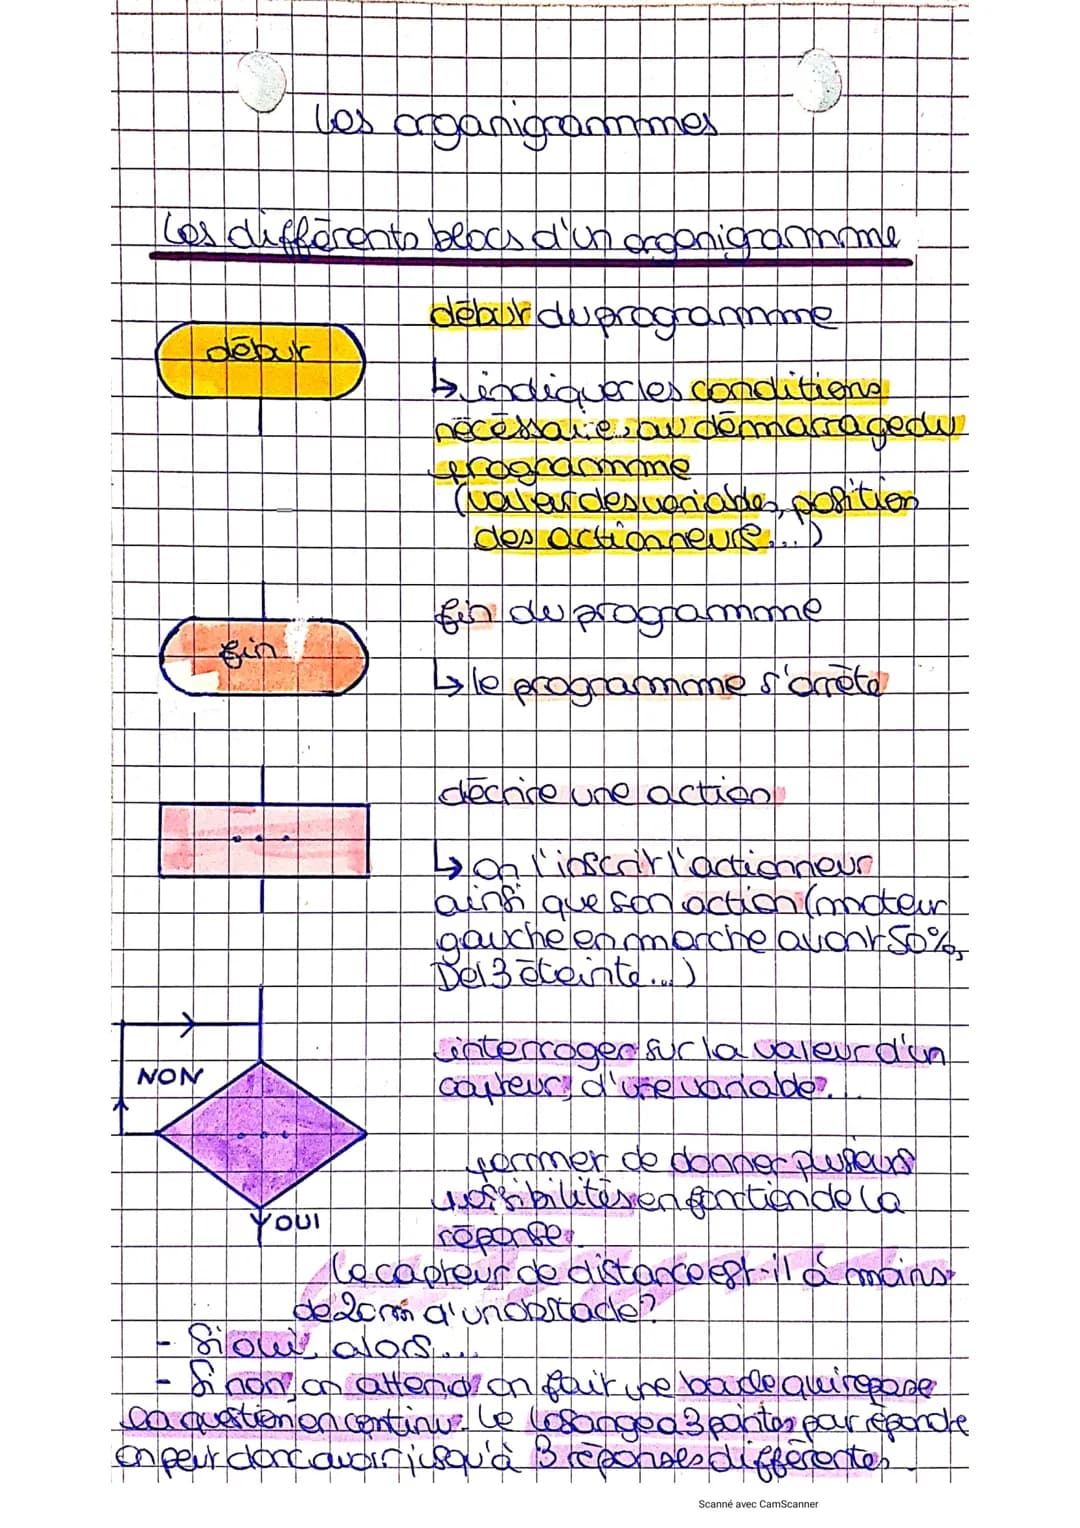 Les organigrammes
Les différents blocs d'un organigramme
début
début du programme
↳ indiquer les conditions
nécessaires au démarrage du
programme
(valeur des variables, position
des actionneurs...)
fin
fin du programme
↳ le programme s'arrête
...
décrire une action
↳ on l'inscrit l'actionneur
ainsi que son action (moteur
gauche en marche avant 50%,
Del 3 éteinte...)
NON
...
OUI
interroger sur la valeur d'un
capteur, d'une variable...
permer de donner plusieurs
possibilités en fonction de la
réponse
Le capteur de distance est-il à moins
de 20cm d'un obstacle?
- Si oui, alors...
- Si non, on attend on fait une boucle qui repose
la question en continu. Le losange a 3 pointes par répondre
on peut donc avoir jusqu'à 3 réponses différentes.
Scanné avec CamScanner